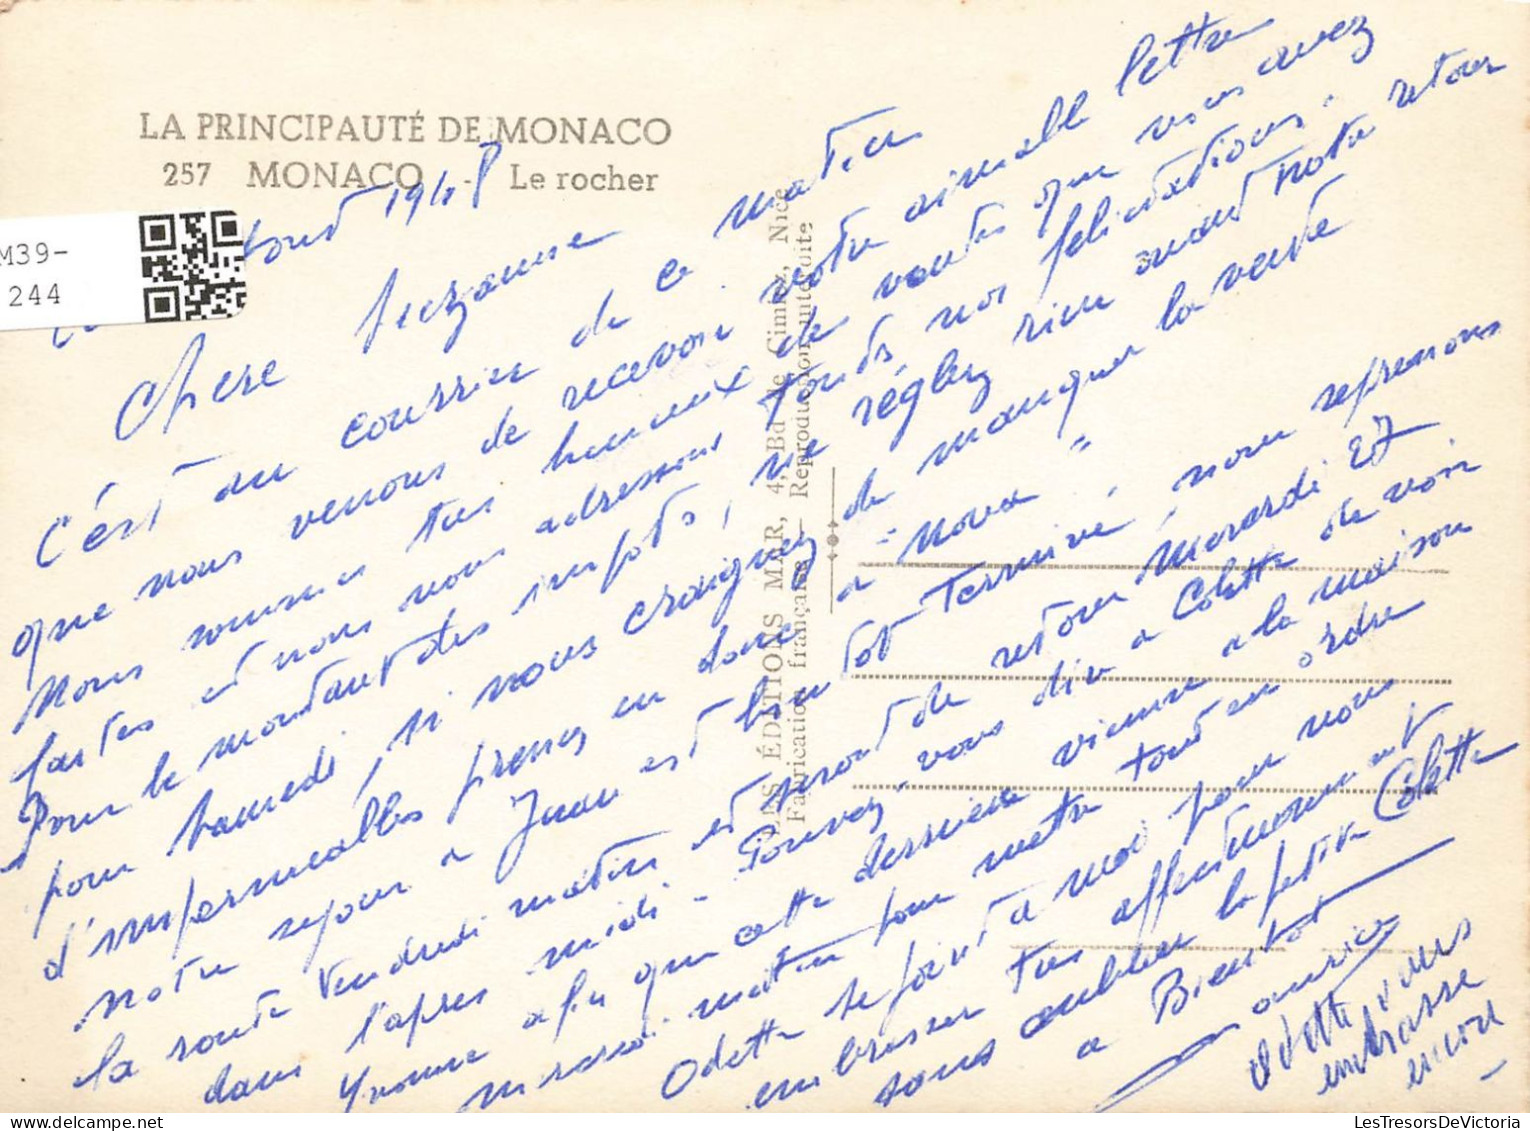 LA PRINCIPAUTÉ DE MONACO
257 MONACO - Le rocher
M39-
244
août 1948
Chere Suzanne
C'est au courrier de ce matin
que nous venons de recevoir votre aimable lettre
Nous sommes tres heureux de ventes que vous avez
faites et nous vous adressons toutes nos félicitations.
Pour le montant des impots, ne réglez rien avant notre retour
pour samedi, si vous craignez de manquer la vente
d'impermeables prenez en donc a " Nova "
Notre sejour a Juan est bien tot terminé, nous reprenons
la route Vendredi matin et serons de retour Mardi 27
dans l'apres midi - Pouvez-vous dire a Colette de voir
Yvonne afin que cette derniere vienne a la maison
mercredi matin pour mettre tout en ordre
Odette se joint a moi pour vous
embrasser tres affectueusement
sans oublier la petite Colette
a Bientot
Maurice
Odette vous
embrasse
encore
LES ÉDITIONS MAR, 4, Bd de Cimiez, Nice
Fabrication française - Reproduction interdite
LesTresorsDeVictoria.com